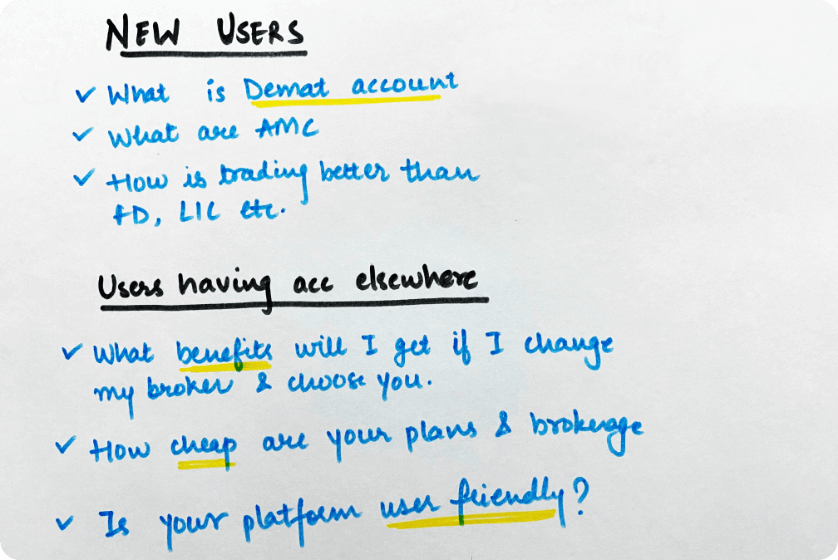 NEW USERS
✓ What is Demat account
✓ What are AMC
✓ How is trading better than
FD, LIC etc.
Users having acc elsewhere
✓ What benefits will I get if I change
my broker & choose you.
✓ How cheap are your plans & brokerage
✓ Is your platform user friendly?